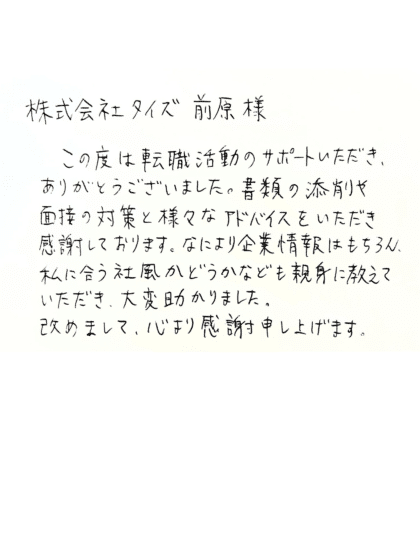 株式会社タイズ 前原様
この度は転職活動のサポートいただき、
ありがとうございました。書類の添削や
面接の対策と様々なアドバイスをいただき
感謝しております。なにより企業情報はもちろん、
私に合う社風かどうかなども親身に教えて
いただき、大変助かりました。
改めまして、心より感謝申し上げます。